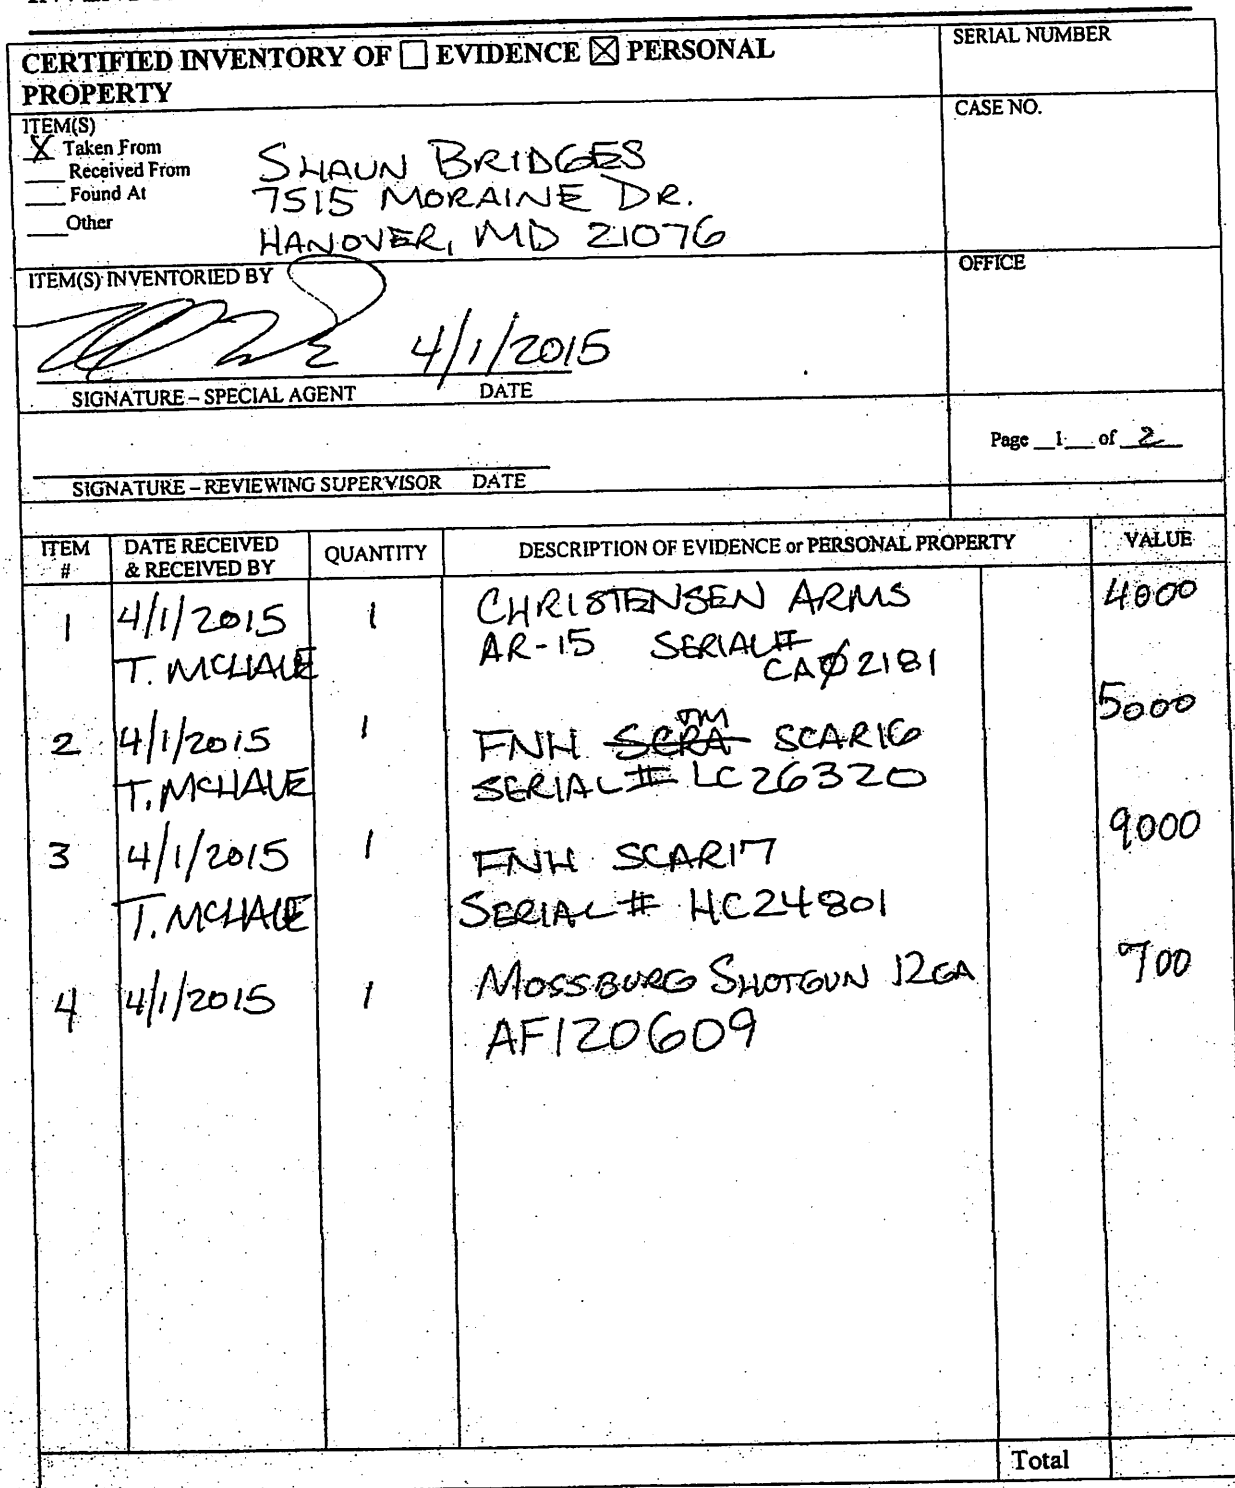 CERTIFIED INVENTORY OF ☐ EVIDENCE ☒ PERSONAL
PROPERTY
SERIAL NUMBER
CASE NO.
ITEM(S)
X Taken From
Received From
Found At
Other
SHAUN BRIDGES
7515 MORAINE DR.
HANOVER, MD 21076
ITEM(S) INVENTORIED BY
OFFICE
4/1/2015
SIGNATURE – SPECIAL AGENT DATE
Page 1 of 2
SIGNATURE – REVIEWING SUPERVISOR DATE
ITEM # DATE RECEIVED & RECEIVED BY QUANTITY DESCRIPTION OF EVIDENCE or PERSONAL PROPERTY VALUE
1 4/1/2015 1 CHRISTENSEN ARMS 4000
T. MCHALE AR-15 SERIAL# CAØ2181
TM
2 4/1/2015 1 FNH SCRA SCAR16 5000
T. MCHALE SERIAL# LC26320
3 4/1/2015 1 FNH SCAR17 9000
T. MCHALE SERIAL# HC24801
4 4/1/2015 1 MOSSBURG SHOTGUN 12GA 700
AF120609
Total